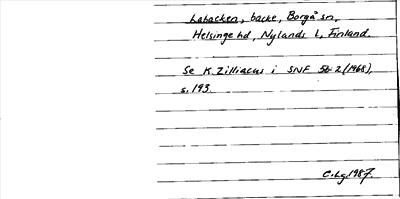 Labacken, backe, Borgå sn,
Helsinge hd, Nylands l, Finland.
Se K. Zilliacus i SNF 56 2 (1968),
s. 193.
C. Lg 1987.